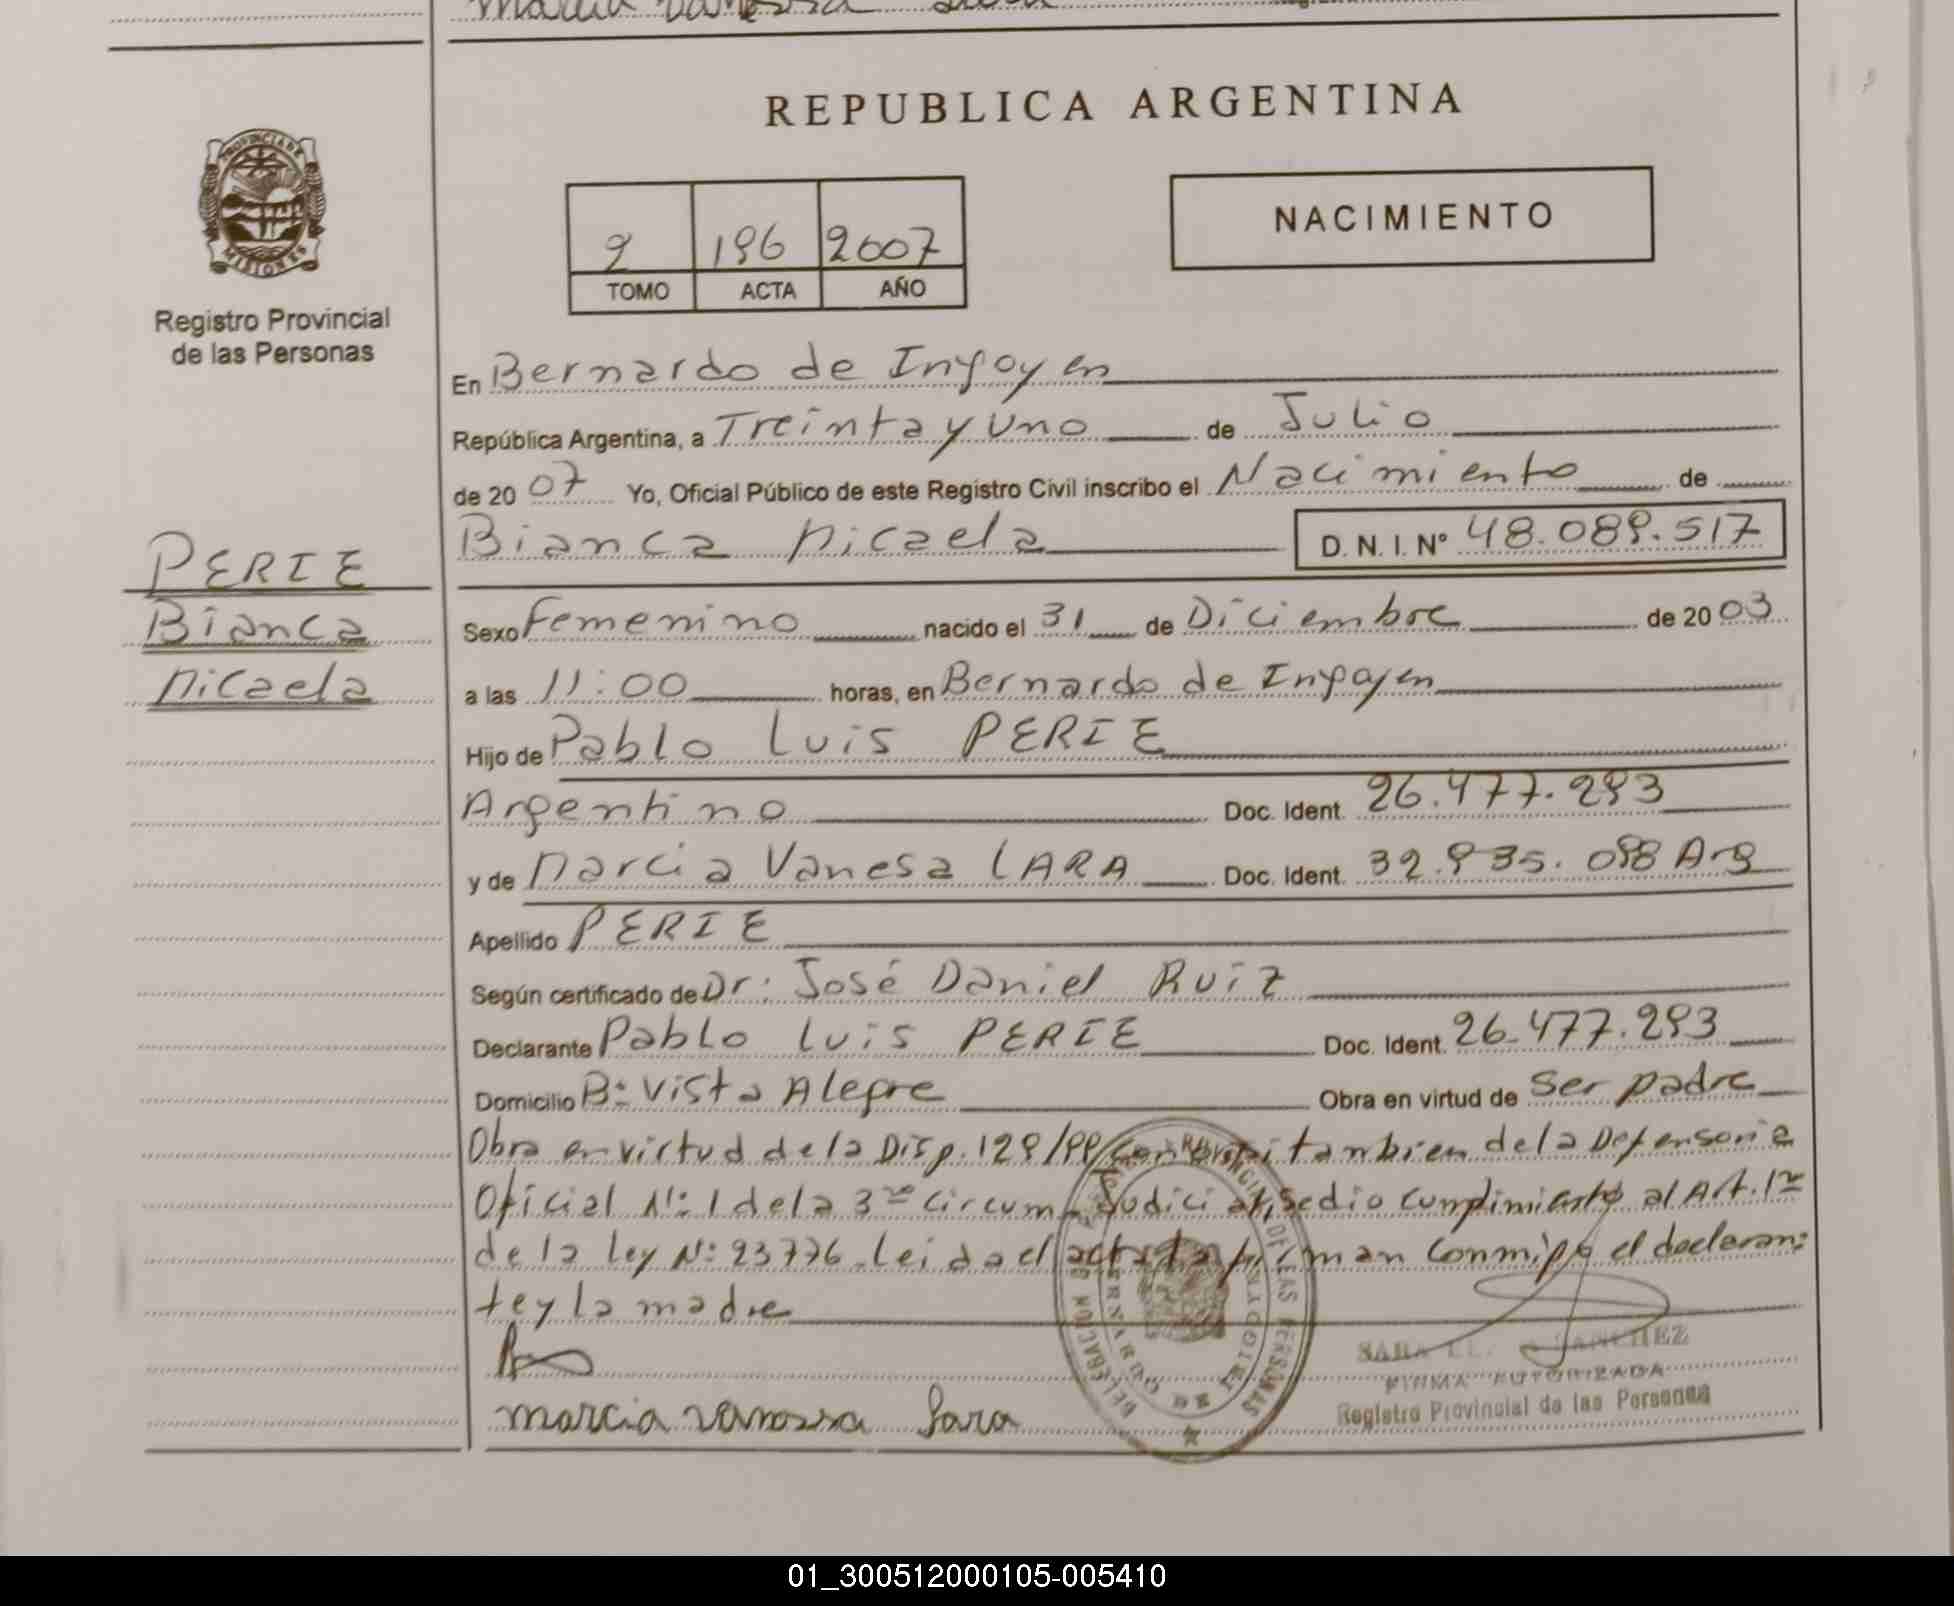 REPUBLICA ARGENTINA
PROVINCIA DE MISIONES
Registro Provincial
de las Personas
2 196 2007
TOMO ACTA AÑO
NACIMIENTO
En Bernardo de Irigoyen
República Argentina, a Treinta y Uno de Julio
de 2007 Yo, Oficial Público de este Registro Civil inscribo el Nacimiento de
Bianca Micaela D. N. I. Nº 48.089.517
PERIE
Bianca
Micaela
Sexo Femenino nacido el 31 de Diciembre de 2003
a las 11:00 horas, en Bernardo de Irigoyen
Hijo de Pablo Luis PERIE
Argentino Doc. Ident. 26.477.293
y de Marcia Vanesa LARA Doc. Ident. 32.935.098 Arg
Apellido PERIE
Según certificado de Dr: José Daniel Ruiz
Declarante Pablo Luis PERIE Doc. Ident. 26.477.293
Domicilio Bº Vista Alegre Obra en virtud de Ser padre
Obra en virtud de la Disp. 129/99 tambien de la Defensoria
Oficial Nº: 1 de la 3ra Circum. Judicial, se dio cumplimiento al Art. 1º
de la Ley Nº: 23776. Leida el acta la firman conmigo el declaran=
te y la madre
marcia vanessa Lara
DELEGACION REGISTRO PROVINCIAL DE LAS PERSONAS
BERNARDO DE IRIGOYEN
SARA SANCHEZ
FIRMA AUTORIZADA
Registro Provincial de las Personas
01_300512000105-005410